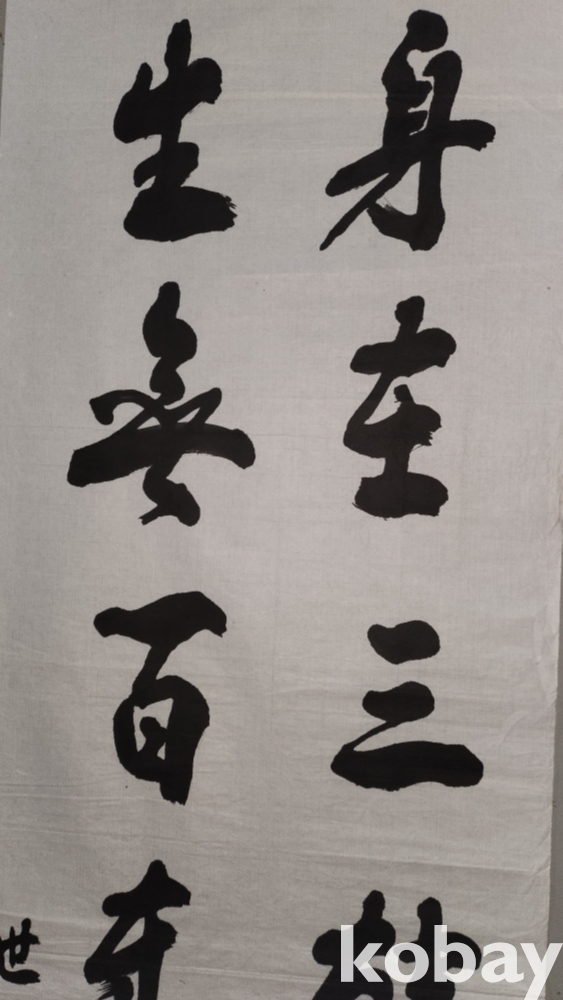 身在三
生無百
世
kobay